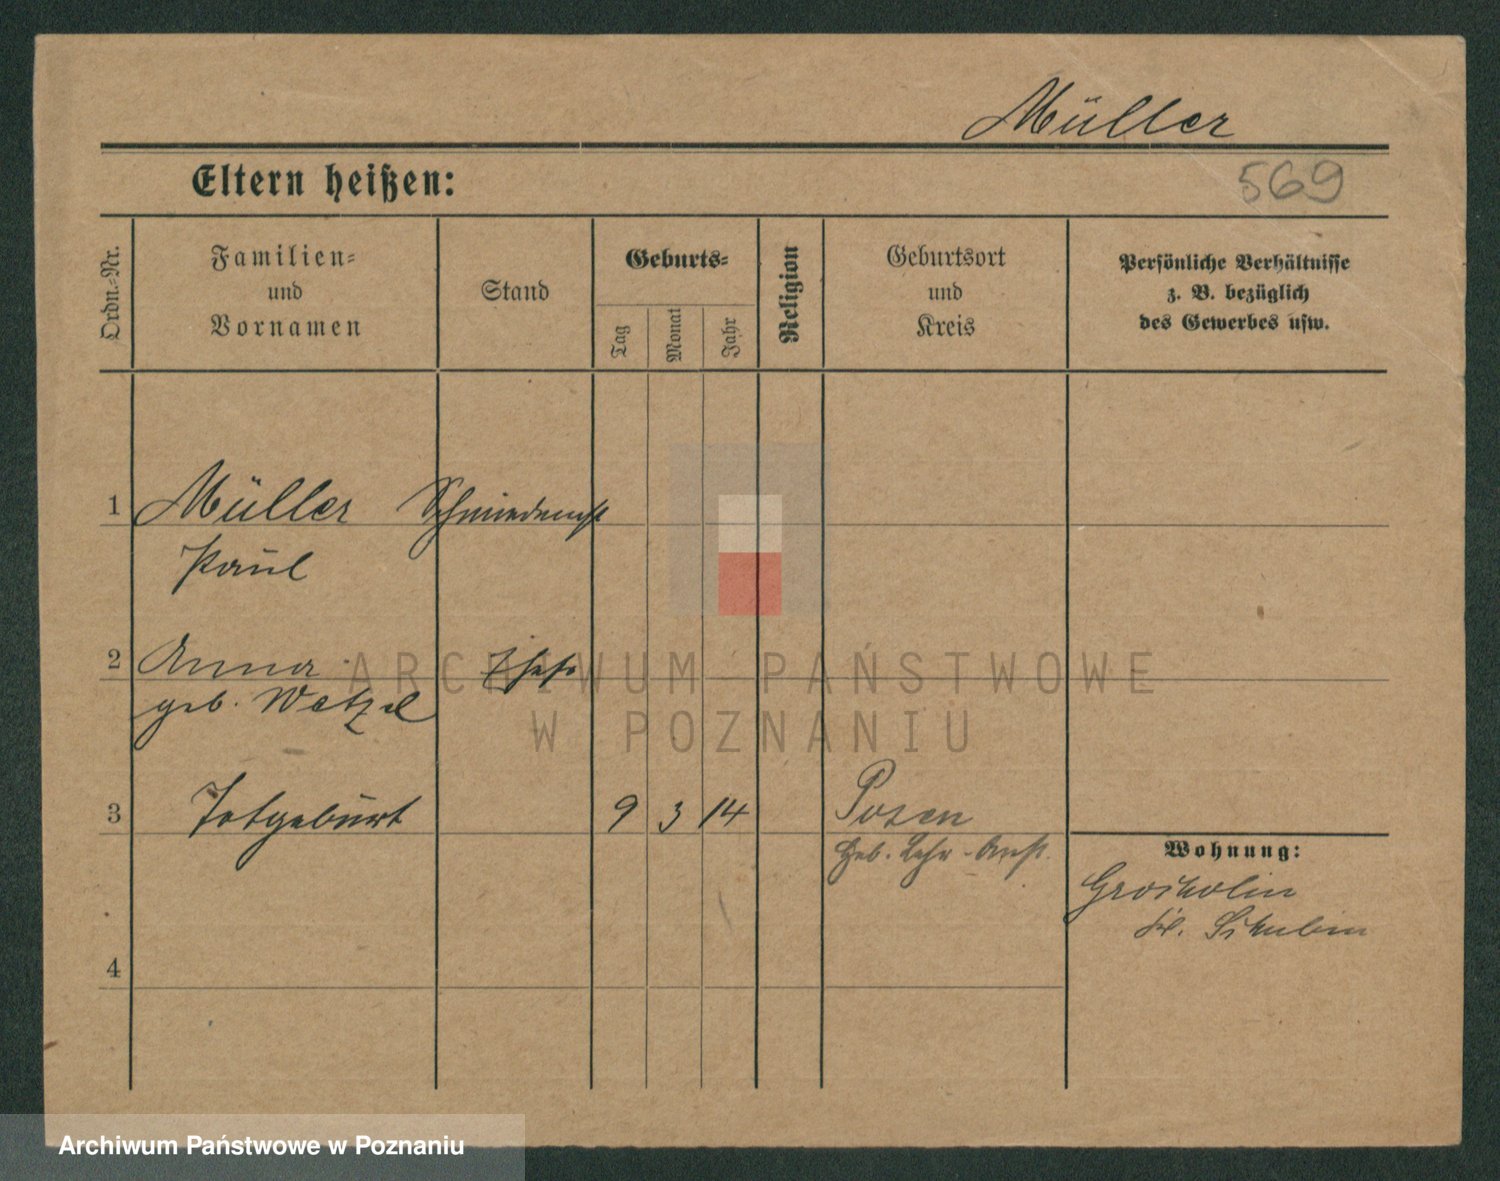 Müller
569
Eltern heißen:
Ordn.-Nr.
Familien-
und
Vornamen
Stand
Geburts-
Tag
Monat
Jahr
Religion
Geburtsort
und
Kreis
Persönliche Verhältnisse
z. B. bezüglich
des Gewerbes usw.
1 Müller Schmiedemstr
Paul
2 Anna Ehefr
geb. Wetzel
3 Totgeburt 9 3 14 Posen
Heb. Lehr-Anst.
Wohnung:
Groikolin
Kr. Schubin
4
ARCHIWUM PAŃSTWOWE
W POZNANIU
Archiwum Państwowe w Poznaniu